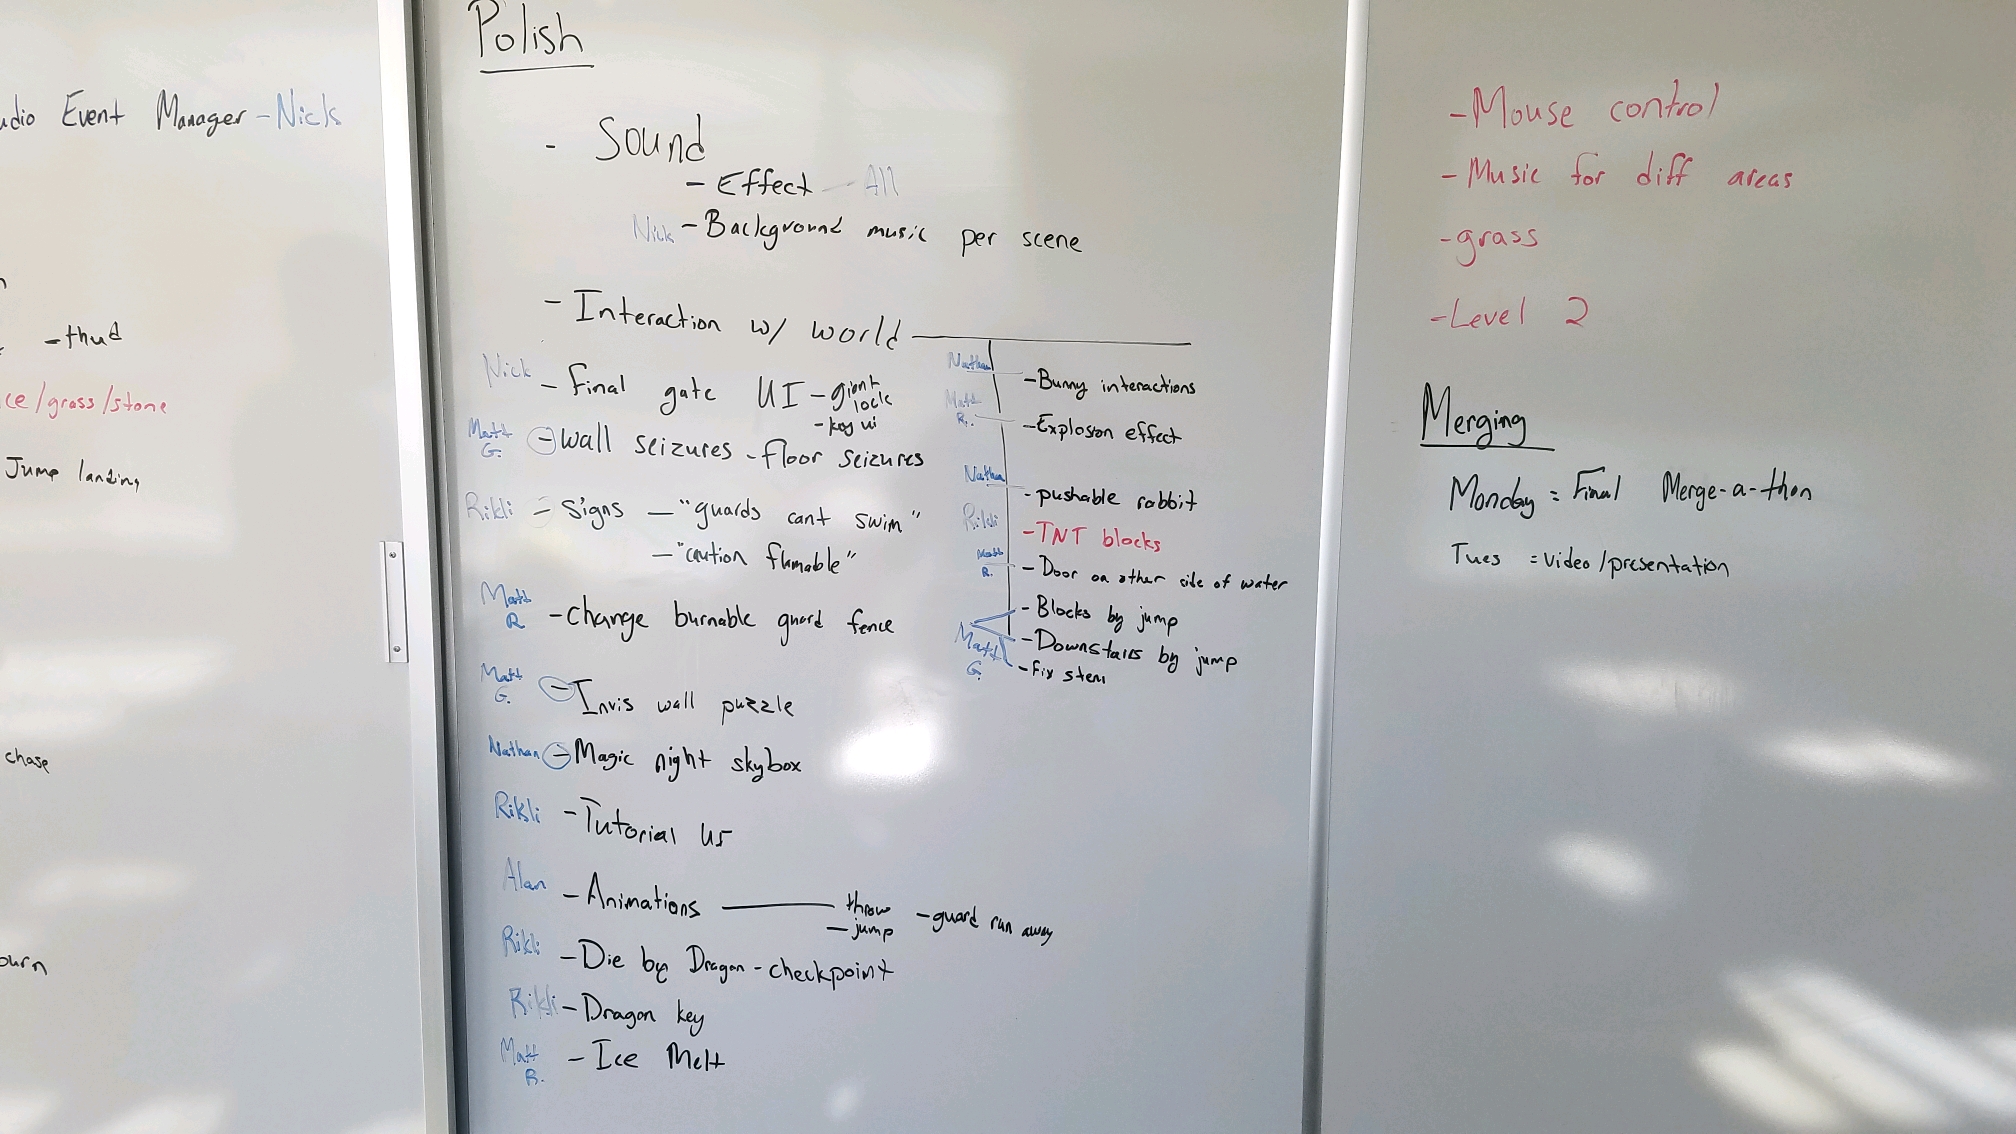 Event Manager - Nick
- thud
/grass/stone
Jump landing
chase
Polish
- Sound
- Effect - All
Nick - Background music per scene
- Interaction w/ world
Nick - final gate UI - giant lock
- key ui
Matt G. - wall seizures - floor seizures
Rikli - signs - "guards cant swim"
- "caution flamable"
Matt R - change burnable guard fence
Matt G. - Invis wall puzzle
Nathan - Magic night skybox
Rikli - Tutorial
Alan - Animations - throw - guard run away
- jump
Rikli - Die by Dragon - checkpoint
Rikli - Dragon key
Matt R. - Ice Melt
Nathan - Bunny interactions
Matt R. - Explosion effect
Nathan - pushable rabbit
Rikli - TNT blocks
Matt R. - Door on other side of water
Matt G. - Blocks by jump
- Downstairs by jump
- fix stem
- Mouse control
- Music for diff areas
- grass
- Level 2
Merging
Monday = Final Merge-a-thon
Tues = video/presentation